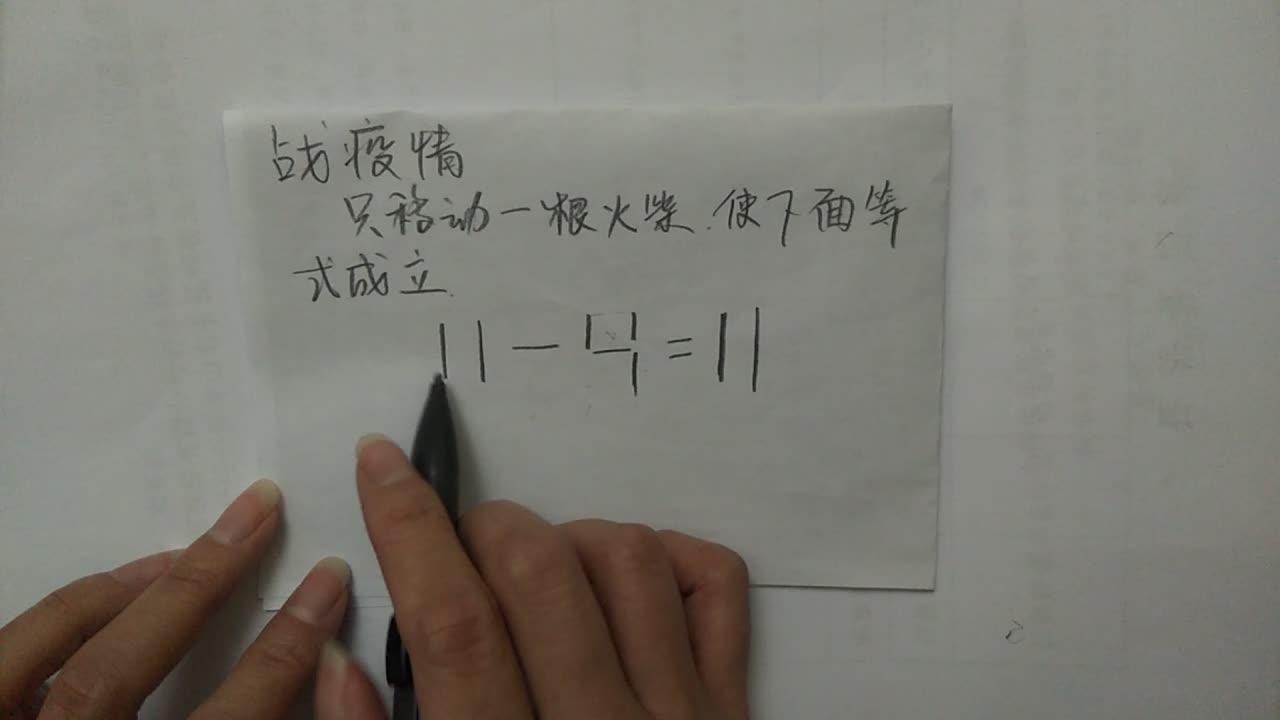 战疫情
只移动一根火柴.使下面等
式成立.
11-9=11